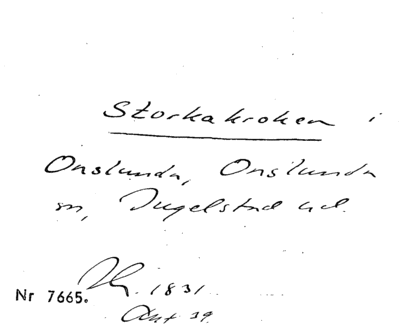 Storkakroken i
Onslunda, Onslunda
sn, Ingelstad hd.
1831
Nr 7665.
Ant 39